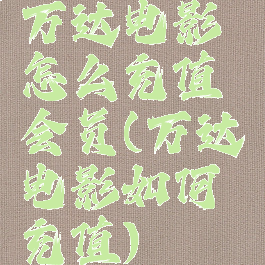 万达电影
怎么充值
会员(万达
电影如何
充值)